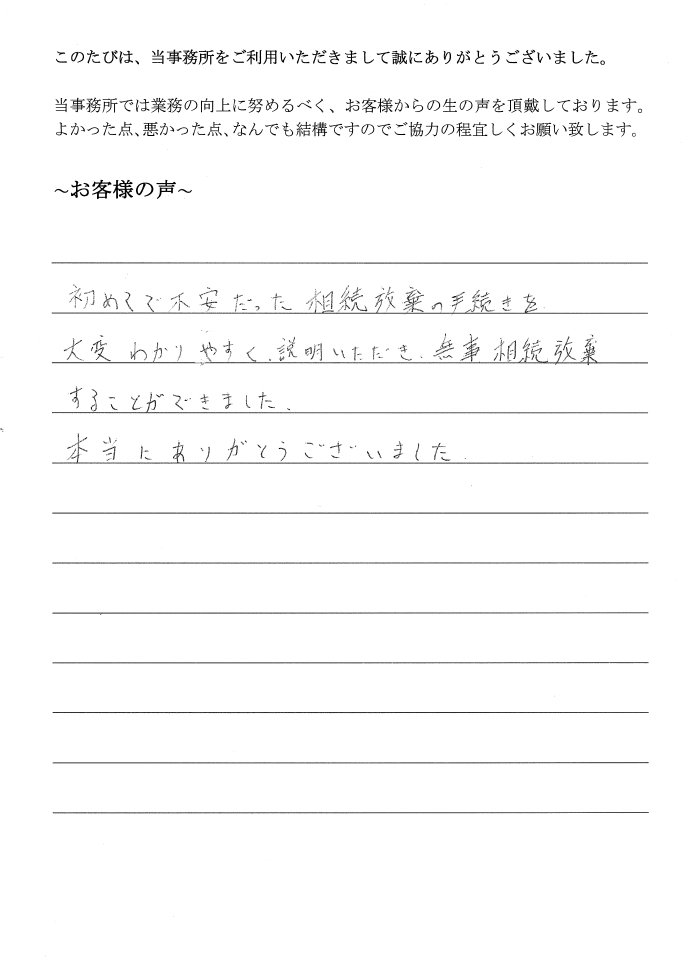 このたびは、当事務所をご利用いただきまして誠にありがとうございました。
当事務所では業務の向上に努めるべく、お客様からの生の声を頂戴しております。
よかった点、悪かった点、なんでも結構ですのでご協力の程宜しくお願い致します。
~お客様の声~
初めてで不安だった相続放棄の手続きを
大変わかりやすく、説明いただき、無事相続放棄
することができました。
本当にありがとうございました。